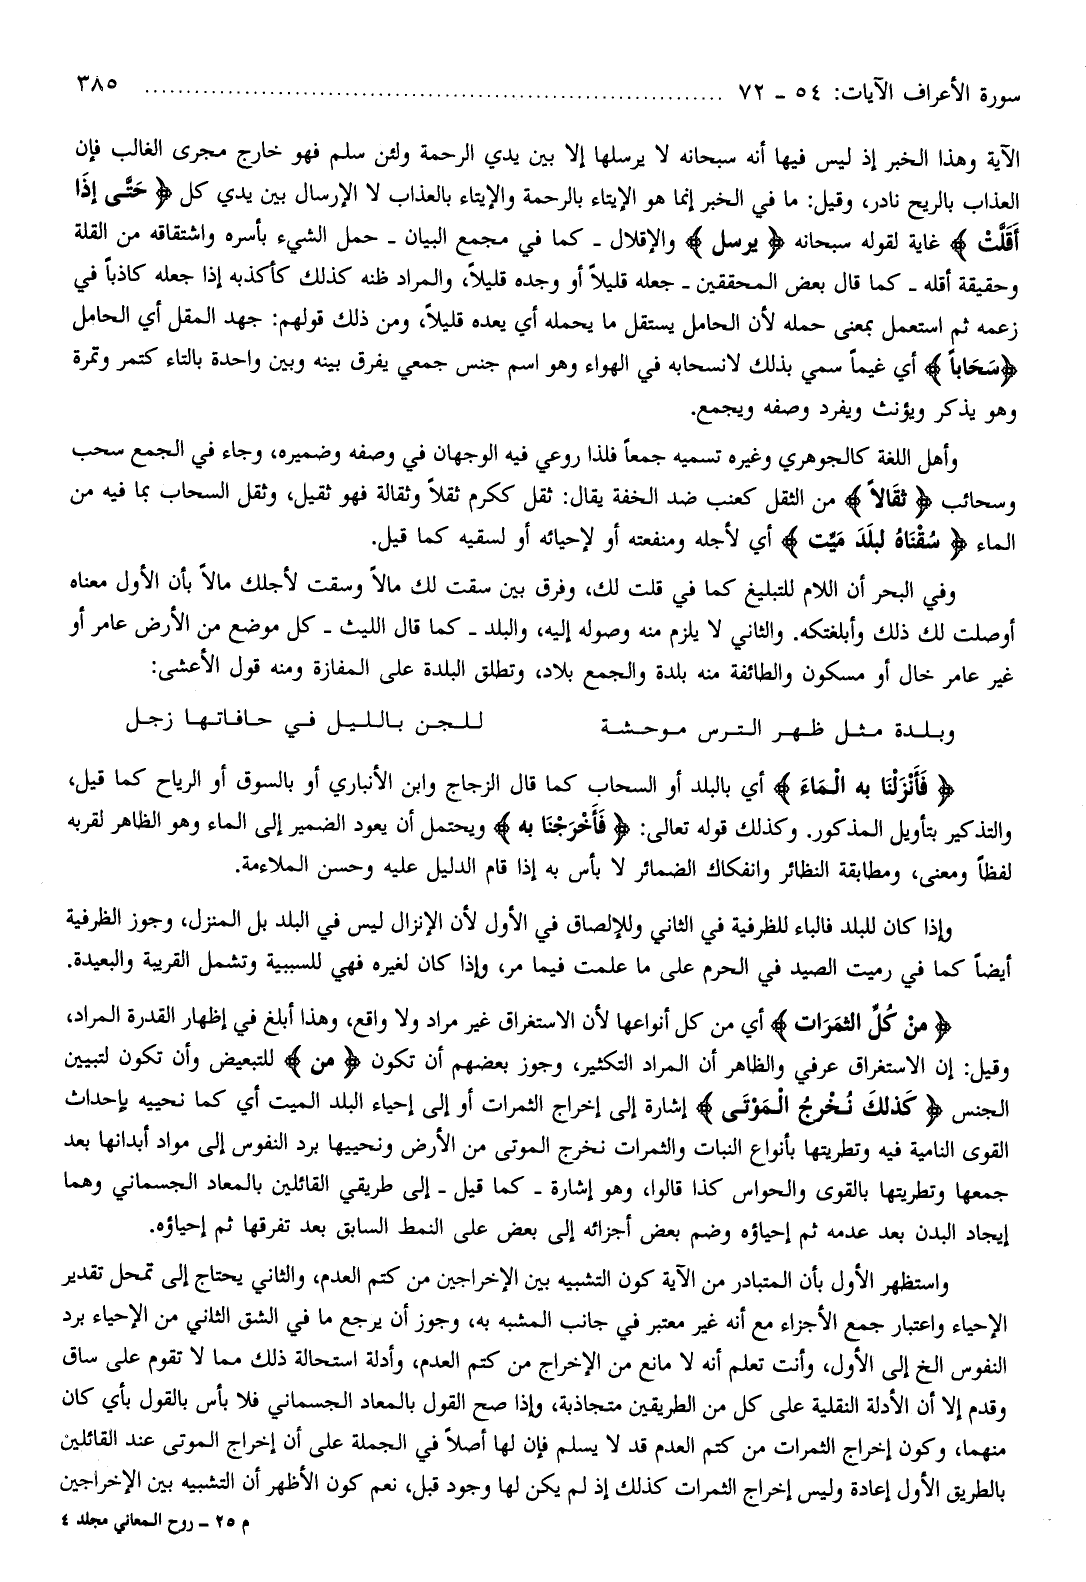 سورة الأعراف الآيات: ٥٤ ـ ٧٢ ........................................................................ ٣٨٥
الآية وهذا الخبر إذ ليس فيها أنه سبحانه لا يرسلها إلا بين يدي الرحمة ولئن سلم فهو خارج مجرى الغالب فإن
العذاب بالريح نادر، وقيل: ما في الخبر إنما هو الإيتاء بالرحمة والإيتاء بالعذاب لا الإرسال بين يدي كل ﴿ حَتَّى إذَا
أَقَلَّتْ ﴾ غاية لقوله سبحانه ﴿ يرسل ﴾ والإقلال ـ كما في مجمع البيان ـ حمل الشيء بأسره واشتقاقه من القلة
وحقيقة أقله ـ كما قال بعض المحققين ـ جعله قليلاً أو وجده قليلاً، والمراد ظنه كذلك كأكذبه إذا جعله كاذباً في
زعمه ثم استعمل بمعنى حمله لأن الحامل يستقل ما يحمله أي يعده قليلاً، ومن ذلك قولهم: جهد المقل أي الحامل
﴿سَحَاباً ﴾ أي غيماً سمي بذلك لانسحابه في الهواء وهو اسم جنس جمعي يفرق بينه وبين واحدة بالتاء كتمر وتمرة
وهو يذكر ويؤنث ويفرد وصفه ويجمع.
وأهل اللغة كالجوهري وغيره تسميه جمعاً فلذا روعي فيه الوجهان في وصفه وضميره، وجاء في الجمع سحب
وسحائب ﴿ ثقَالاً ﴾ من الثقل كعنب ضد الخفة يقال: ثقل ككرم ثقلاً وثقالة فهو ثقيل، وثقل السحاب بما فيه من
الماء ﴿ سُقْنَاهُ لبلَدَ مَيِّت ﴾ أي لأجله ومنفعته أو لإحيائه أو لسقيه كما قيل.
وفي البحر أن اللام للتبليغ كما في قلت لك، وفرق بين سقت لك مالاً وسقت لأجلك مالاً بأن الأول معناه
أوصلت لك ذلك وأبلغتكه. والثاني لا يلزم منه وصوله إليه، والبلد ـ كما قال الليث ـ كل موضع من الأرض عامر أو
غير عامر خال أو مسكون والطائفة منه بلدة والجمع بلاد، وتطلق البلدة على المفازة ومنه قول الأعشى:
وبـلـدة مـثـل ظـهـر الـتـرس مـوحـشـة للـجـن بـالـلـيـل فـي حـافـاتـهـا زجـل
﴿ فَأَنْزَلْنَا به الْمَاءَ ﴾ أي بالبلد أو السحاب كما قال الزجاج وابن الأنباري أو بالسوق أو الرياح كما قيل،
والتذكير بتأويل المذكور. وكذلك قوله تعالى: ﴿ فَأَخْرَجْنَا به ﴾ ويحتمل أن يعود الضمير إلى الماء وهو الظاهر لقربه
لفظاً ومعنى، ومطابقة النظائر وانفكاك الضمائر لا بأس به إذا قام الدليل عليه وحسن الملاءمة.
وإذا كان للبلد فالباء للظرفية في الثاني وللإلصاق في الأول لأن الإنزال ليس في البلد بل المنزل، وجوز الظرفية
أيضاً كما في رميت الصيد في الحرم على ما علمت فيما مر، وإذا كان لغيره فهي للسببية وتشمل القريبة والبعيدة.
﴿ منْ كُلِّ الثمَرَات ﴾ أي من كل أنواعها لأن الاستغراق غير مراد ولا واقع، وهذا أبلغ في إظهار القدرة المراد،
وقيل: إن الاستغراق عرفي والظاهر أن المراد التكثير، وجوز بعضهم أن تكون ﴿ من ﴾ للتبعيض وأن تكون لتبيين
الجنس ﴿ كَذلكَ نُخْرجُ الْمَوْتَى ﴾ إشارة إلى إخراج الثمرات أو إلى إحياء البلد الميت أي كما نحييه بإحداث
القوى النامية فيه وتطريتها بأنواع النبات والثمرات نخرج الموتى من الأرض ونحييها برد النفوس إلى مواد أبدانها بعد
جمعها وتطريتها بالقوى والحواس كذا قالوا، وهو إشارة ـ كما قيل ـ إلى طريقي القائلين بالمعاد الجسماني وهما
إيجاد البدن بعد عدمه ثم إحياؤه وضم بعض أجزائه إلى بعض على النمط السابق بعد تفرقها ثم إحياؤه.
واستظهر الأول بأن المتبادر من الآية كون التشبيه بين الإخراجين من كتم العدم، والثاني يحتاج إلى تمحل تقدير
الإحياء واعتبار جمع الأجزاء مع أنه غير معتبر في جانب المشبه به، وجوز أن يرجع ما في الشق الثاني من الإحياء برد
النفوس الخ إلى الأول، وأنت تعلم أنه لا مانع من الإخراج من كتم العدم، وأدلة استحالة ذلك مما لا تقوم على ساق
وقدم إلا أن الأدلة النقلية على كل من الطريقين متجاذبة، وإذا صح القول بالمعاد الجسماني فلا بأس بالقول بأي كان
منهما، وكون إخراج الثمرات من كتم العدم قد لا يسلم فإن لها أصلاً في الجملة على أن إخراج الموتى عند القائلين
بالطريق الأول إعادة وليس إخراج الثمرات كذلك إذ لم يكن لها وجود قبل، نعم كون الأظهر أن التشبيه بين الإخراجين
م ٢٥ ـ روح المعاني مجلد ٤